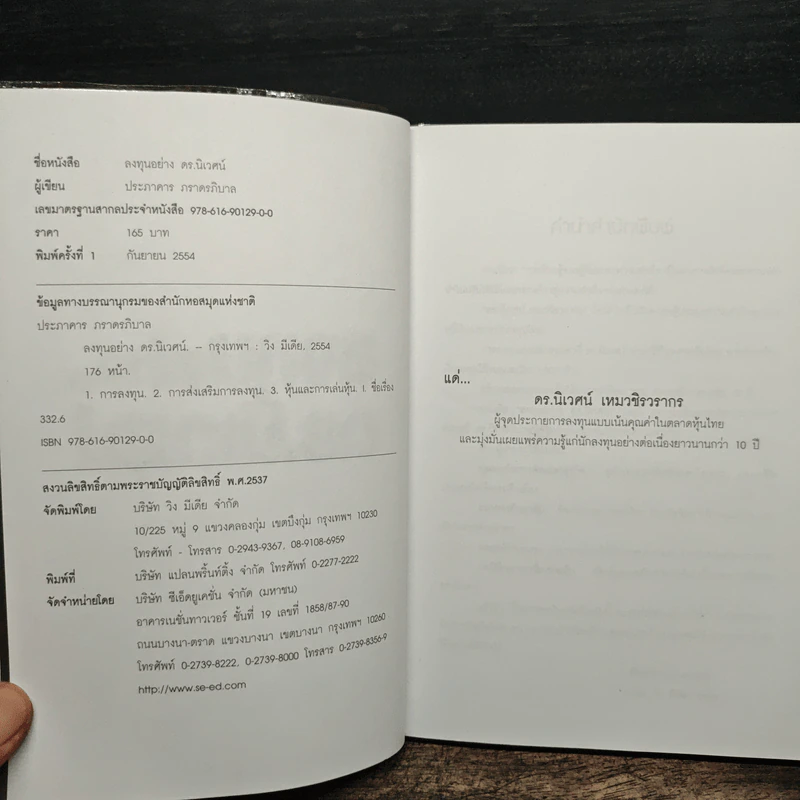 ชื่อหนังสือ ลงทุนอย่าง ดร.นิเวศน์
ผู้เขียน ประภาคาร ภราดรภิบาล
เลขมาตรฐานสากลประจำหนังสือ 978-616-90129-0-0
ราคา 165 บาท
พิมพ์ครั้งที่ 1 กันยายน 2554
ข้อมูลทางบรรณานุกรมของสำนักหอสมุดแห่งชาติ
ประภาคาร ภราดรภิบาล
ลงทุนอย่าง ดร.นิเวศน์. – กรุงเทพฯ : วิง มีเดีย, 2554
176 หน้า.
1. การลงทุน. 2. การส่งเสริมการลงทุน. 3. หุ้นและการเล่นหุ้น. I. ชื่อเรื่อง
332.6
ISBN 978-616-90129-0-0
สงวนลิขสิทธิ์ตามพระราชบัญญัติลิขสิทธิ์ พ.ศ.2537
จัดพิมพ์โดย บริษัท วิง มีเดีย จำกัด
10/225 หมู่ 9 แขวงคลองกุ่ม เขตบึงกุ่ม กรุงเทพฯ 10230
โทรศัพท์ - โทรสาร 0-2943-9367, 08-9108-6959
พิมพ์ที่ บริษัท แปลนพริ้นท์ติ้ง จำกัด โทรศัพท์ 0-2277-2222
จัดจำหน่ายโดย บริษัท ซีเอ็ดยูเคชั่น จำกัด (มหาชน)
อาคารเนชั่นทาวเวอร์ ชั้นที่ 19 เลขที่ 1858/87-90
ถนนบางนา-ตราด แขวงบางนา เขตบางนา กรุงเทพฯ 10260
โทรศัพท์ 0-2739-8222, 0-2739-8000 โทรสาร 0-2739-8356-9
http://www.se-ed.com
แด่...
ดร.นิเวศน์ เหมวชิรวรากร
ผู้จุดประกายการลงทุนแบบเน้นคุณค่าในตลาดหุ้นไทย
และมุ่งมั่นเผยแพร่ความรู้แก่นักลงทุนอย่างต่อเนื่องยาวนานกว่า 10 ปี